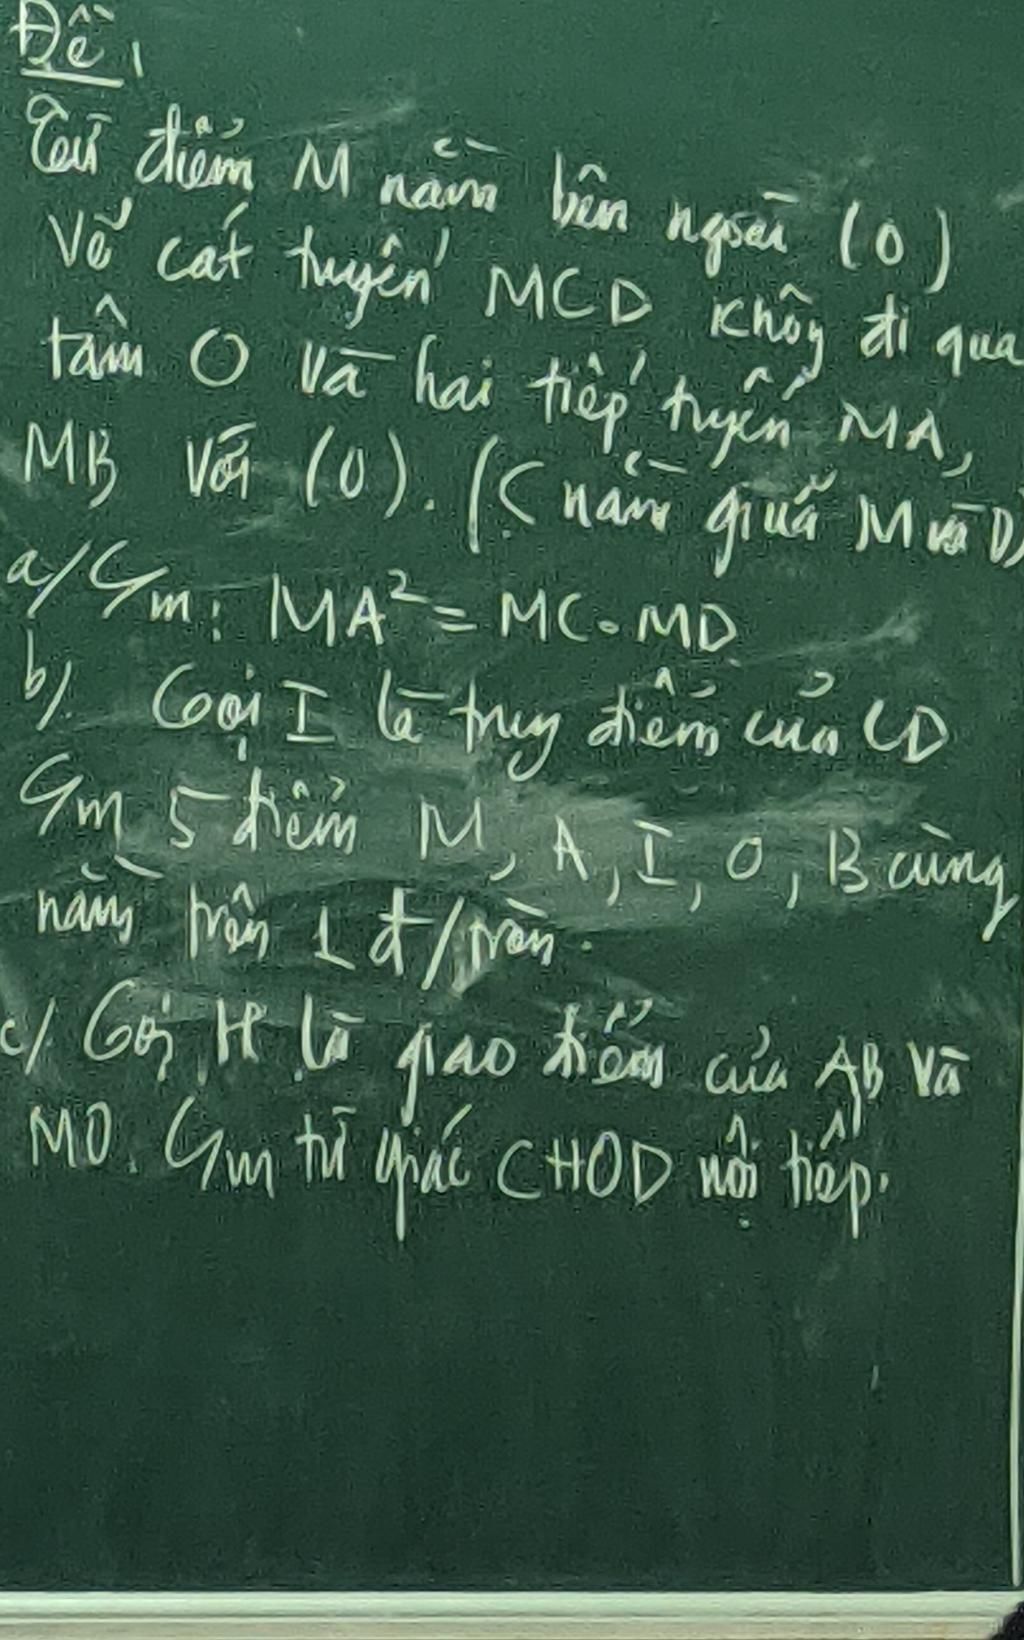 Đề 1
Từ điểm M nằm bên ngoài (O)
Vẽ cát tuyến MCD không đi qua
tâm O và hai tiếp tuyến MA,
MB với (O). (C nằm giữa M và D)
a/ Cm: MA² = MC.MD
b/. Gọi I là trung điểm của CD
Cm 5 điểm M, A, I, O, B cùng
nằm trên 1 đ/tròn.
c/ Gọi H là giao điểm của AB và
MO. Cm tứ giác CHOD nội tiếp.